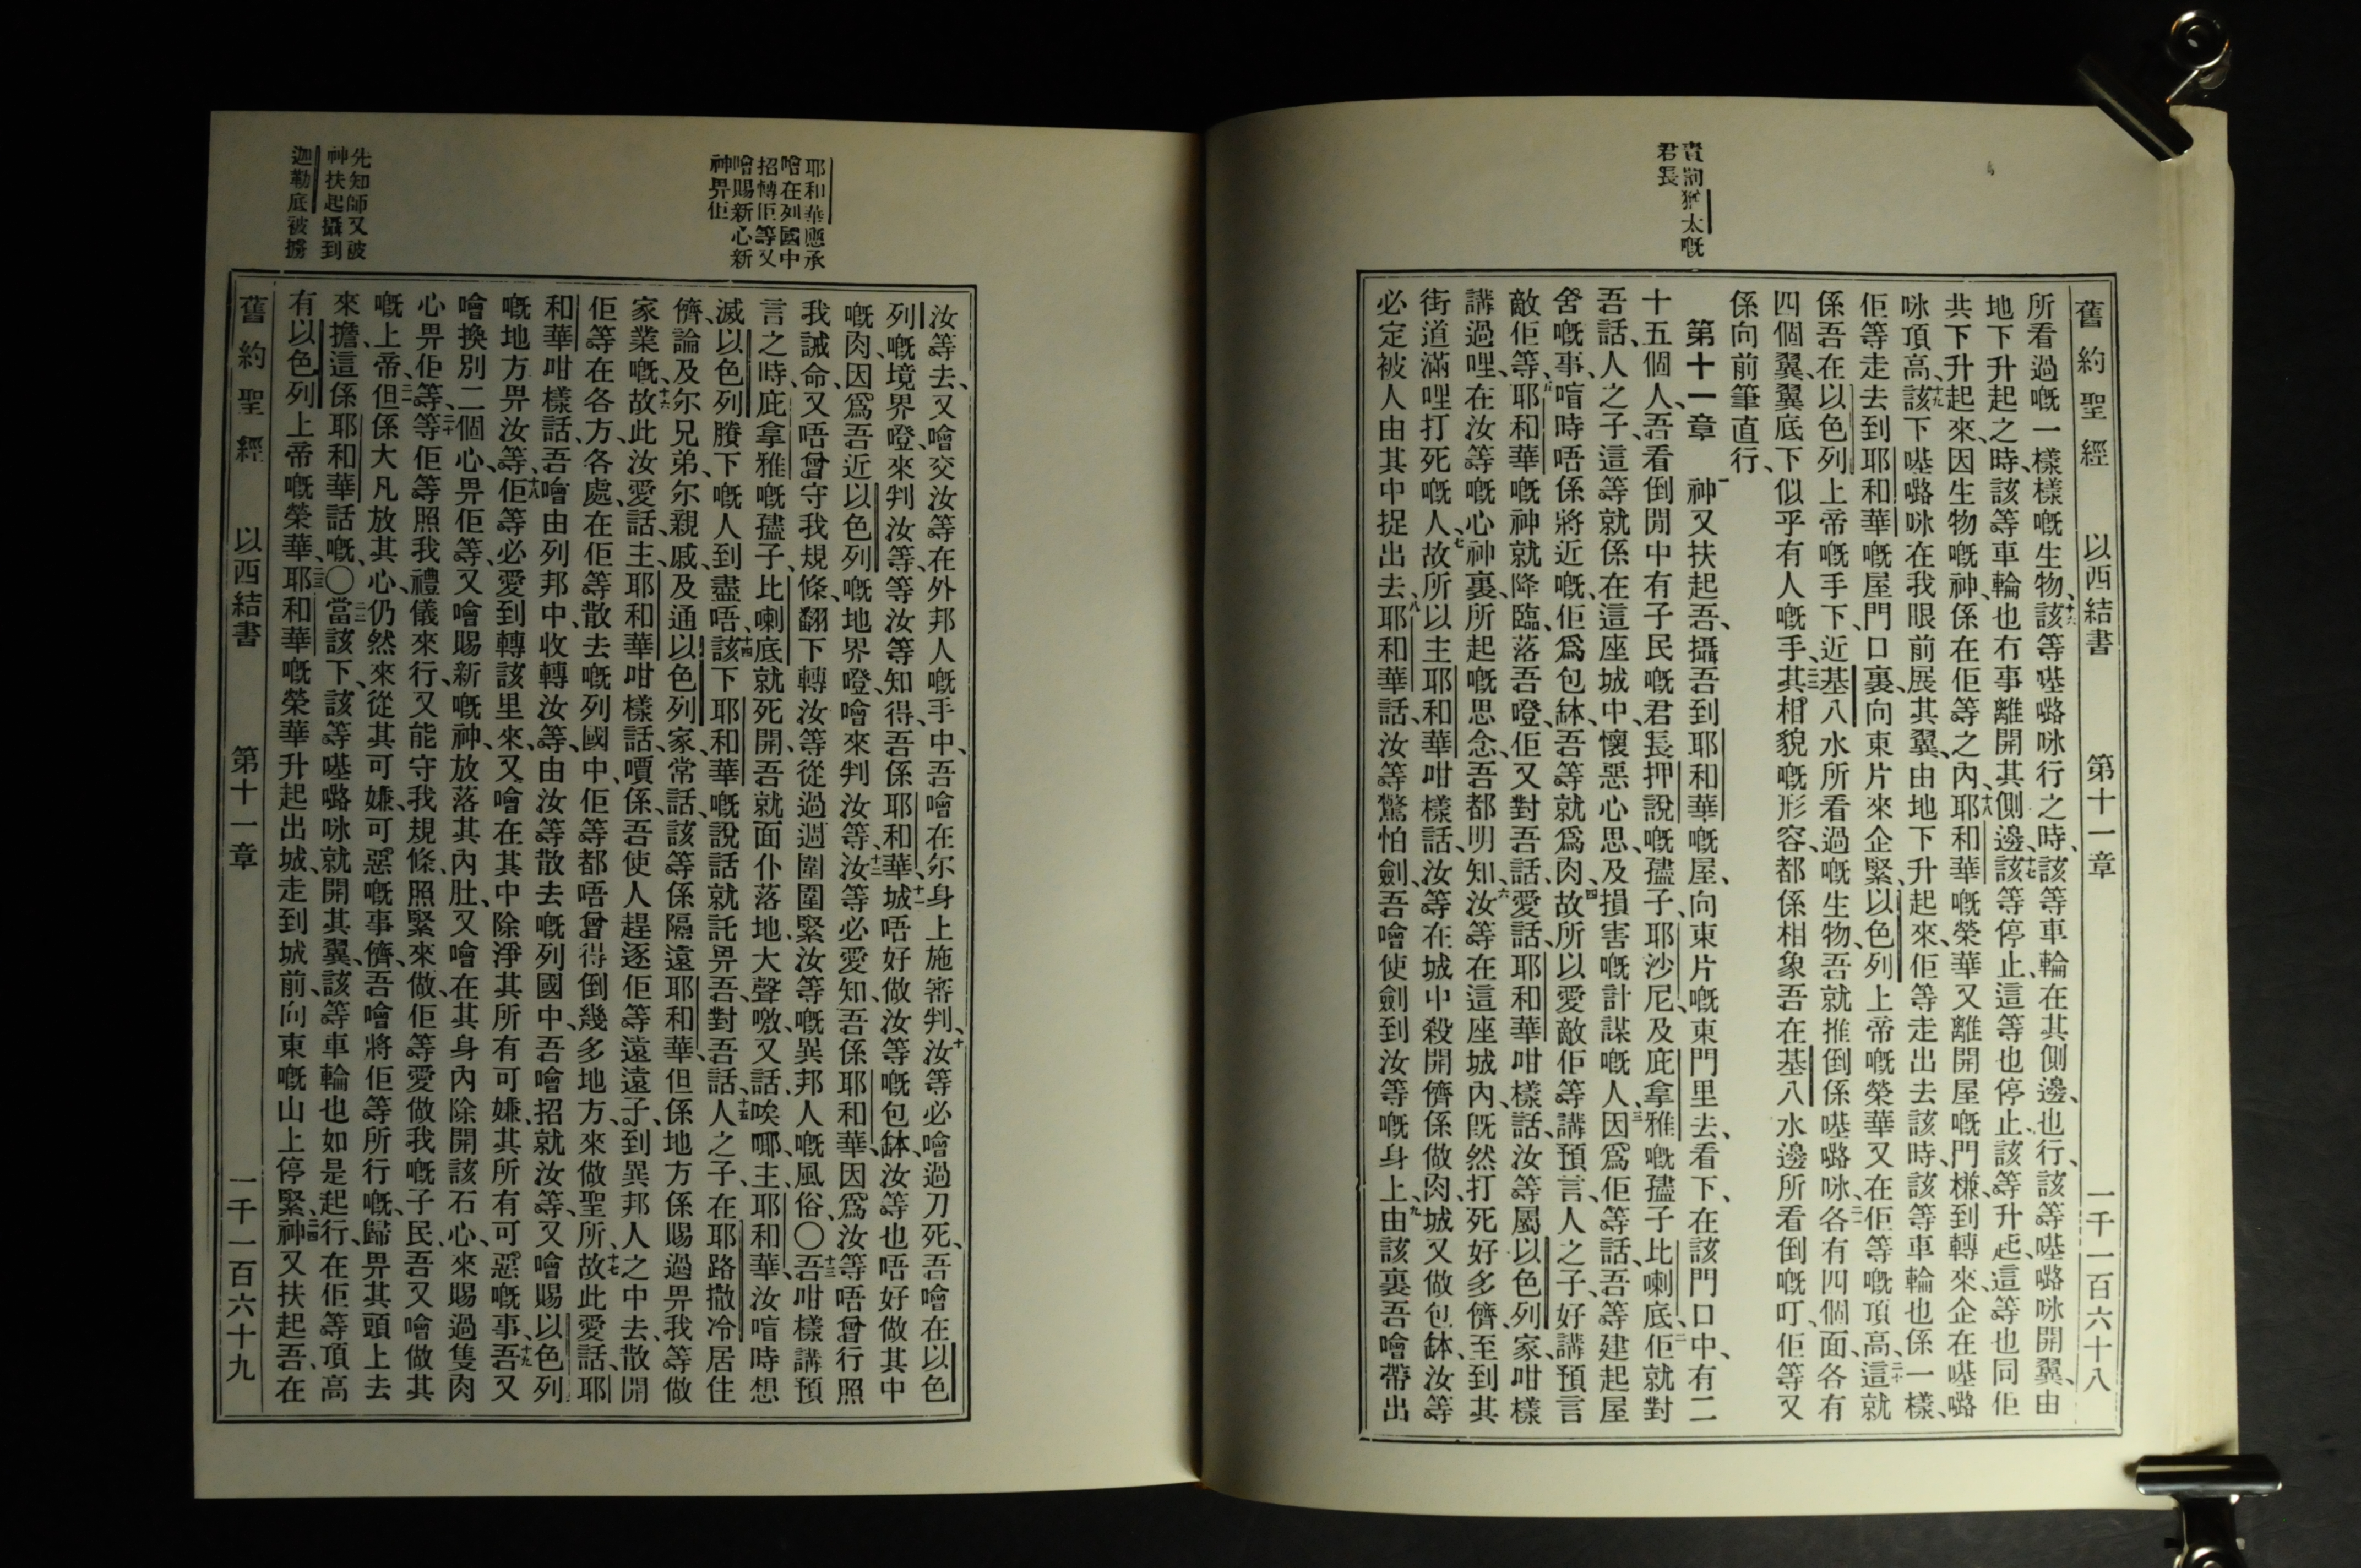 舊約聖經 以西結書 第十一章 一千一百六十八
所看過嘅一樣樣嘅生物、十六該等𠻘嚕咏行之時、該等車輪在其側邊、也行、該等𠻘嚕咏開翼、由
地下升起之時、該等車輪也冇事離開其側邊、十七該等停止、這等也停止、該等升起、這等也同佢
共下升起來、因生物嘅神、係在佢等之內、十八耶和華嘅榮華又離開屋嘅門檻、到轉來、企在𠻘嚕
咏頂高、十九該下𠻘嚕咏在我眼前展其翼、由地下升起來、佢等走出去該時、該等車輪也係一樣、
佢等走去到耶和華嘅屋門口裏、向東片來企緊、以色列上帝嘅榮華又在佢等嘅頂高、二十這就
係吾在以色列上帝嘅手下、近基八水所看過嘅生物、吾就推倒係𠻘嚕咏、二一各有四個面、各有
四個翼、翼底下似乎有人嘅手、二二其相貌嘅形容、都係相象吾在基八水邊所看倒嘅叮、佢等又
係向前筆直行、
第十一章 一神又扶起吾、攝吾到耶和華嘅屋、向東片嘅東門里去、看下、在該門口中、有二
十五個人、吾看倒閒中有子民嘅君長押說嘅孻子耶沙尼、及庇拿雅嘅孻子比喇底、二佢就對
吾話、人之子、這等就係在這座城中、懷惡心思、及損害嘅計謀嘅人、三因爲佢等話、吾等建起屋
舍嘅事、喧時唔係將近嘅、佢爲包缽、吾等就爲肉、四故所以愛敵佢等講預言、人之子、好講預言
敵佢等、五耶和華嘅神就降臨、落吾磴、佢又對吾話、愛話、耶和華咁樣話、汝等屬以色列家、咁樣
講過哩、在汝等嘅心神裏、所起嘅思念、吾都明知、六汝等在這座城內、既然打死好多儕、至到其
街道滿哩打死嘅人、七故所以主耶和華咁樣話、汝等在城中殺開儕係做肉、城又做包缽、汝等
必定被人由其中捉出去、八耶和華話、汝等驚怕劍、吾噲使劍到汝等嘅身上、九由該裏吾噲帶出
責罰猶太嘅
君長
汝等去、又噲交汝等在外邦人嘅手中、吾噲在尔身上施審判、十汝等必噲過刀死、吾噲在以色
列嘅境界磴、來判汝等、等汝等知得、吾係耶和華、十一城唔好做汝等嘅包缽、汝等也唔好做其中
嘅肉、因爲吾近以色列嘅地界磴、噲來判汝等、十二汝等必愛知、吾係耶和華、因爲汝等唔曾行照
我誡命、又唔曾守我規條、翻下轉汝等從過週圍圍緊汝等嘅異邦人嘅風俗、〇十三吾咁樣講預
言之時、庇拿雅嘅孻子、比喇底就死開、吾就面仆落地、大聲噭、又話、唉㖿、主耶和華、汝喧時想
滅以色列賸下嘅人到盡唔、十四該下耶和華嘅說話就託畀吾、對吾話、十五人之子、在耶路撒冷居住
儕、論及尔兄弟、尔親戚、及通以色列家、常話、該等係隔遠耶和華、但係地方係賜過畀我等做
家業嘅、十六故此汝愛話、主耶和華咁樣話、嘪係吾使人趕逐佢等遠遠子、到異邦人之中去、散開
佢等在各方、各處、在佢等散去嘅列國中、佢等都唔曾得倒幾多地方、來做聖所、十七故此愛話、耶
和華咁樣話、吾噲由列邦中、收轉汝等、由汝等散去嘅列國中、吾噲招就汝等、又噲賜以色列
嘅地方畀汝等、十八佢等必愛到轉該里來、又噲在其中除淨其所有可嫌、其所有可惡嘅事、十九吾又
噲換別二個心、畀佢等、又噲賜新嘅神、放落其內肚、又噲在其身內除開該石心、來賜過隻肉
心畀佢等、二十等佢等照我禮儀來行、又能守我規條、照緊來做、佢等愛做我嘅子民、吾又噲做其
嘅上帝、二一但係大凡放其心、仍然來從其可嫌、可惡嘅事儕、吾噲將佢等所行嘅、歸畀其頭上去
來擔、這係耶和華話嘅、〇二二當該下、該等𠻘嚕咏就開其翼、該等車輪也如是起行、在佢等頂高
有以色列上帝嘅榮華、二三耶和華嘅榮華升起出城、走到城前、向東嘅山上停緊、二四神又扶起吾、在
舊約聖經 以西結書 第十一章 一千一百六十九
耶和華應承
噲在列國中
招轉佢等又
噲賜新心新
神畀佢
先知師又被
神扶起攝到
迦勒底被擄